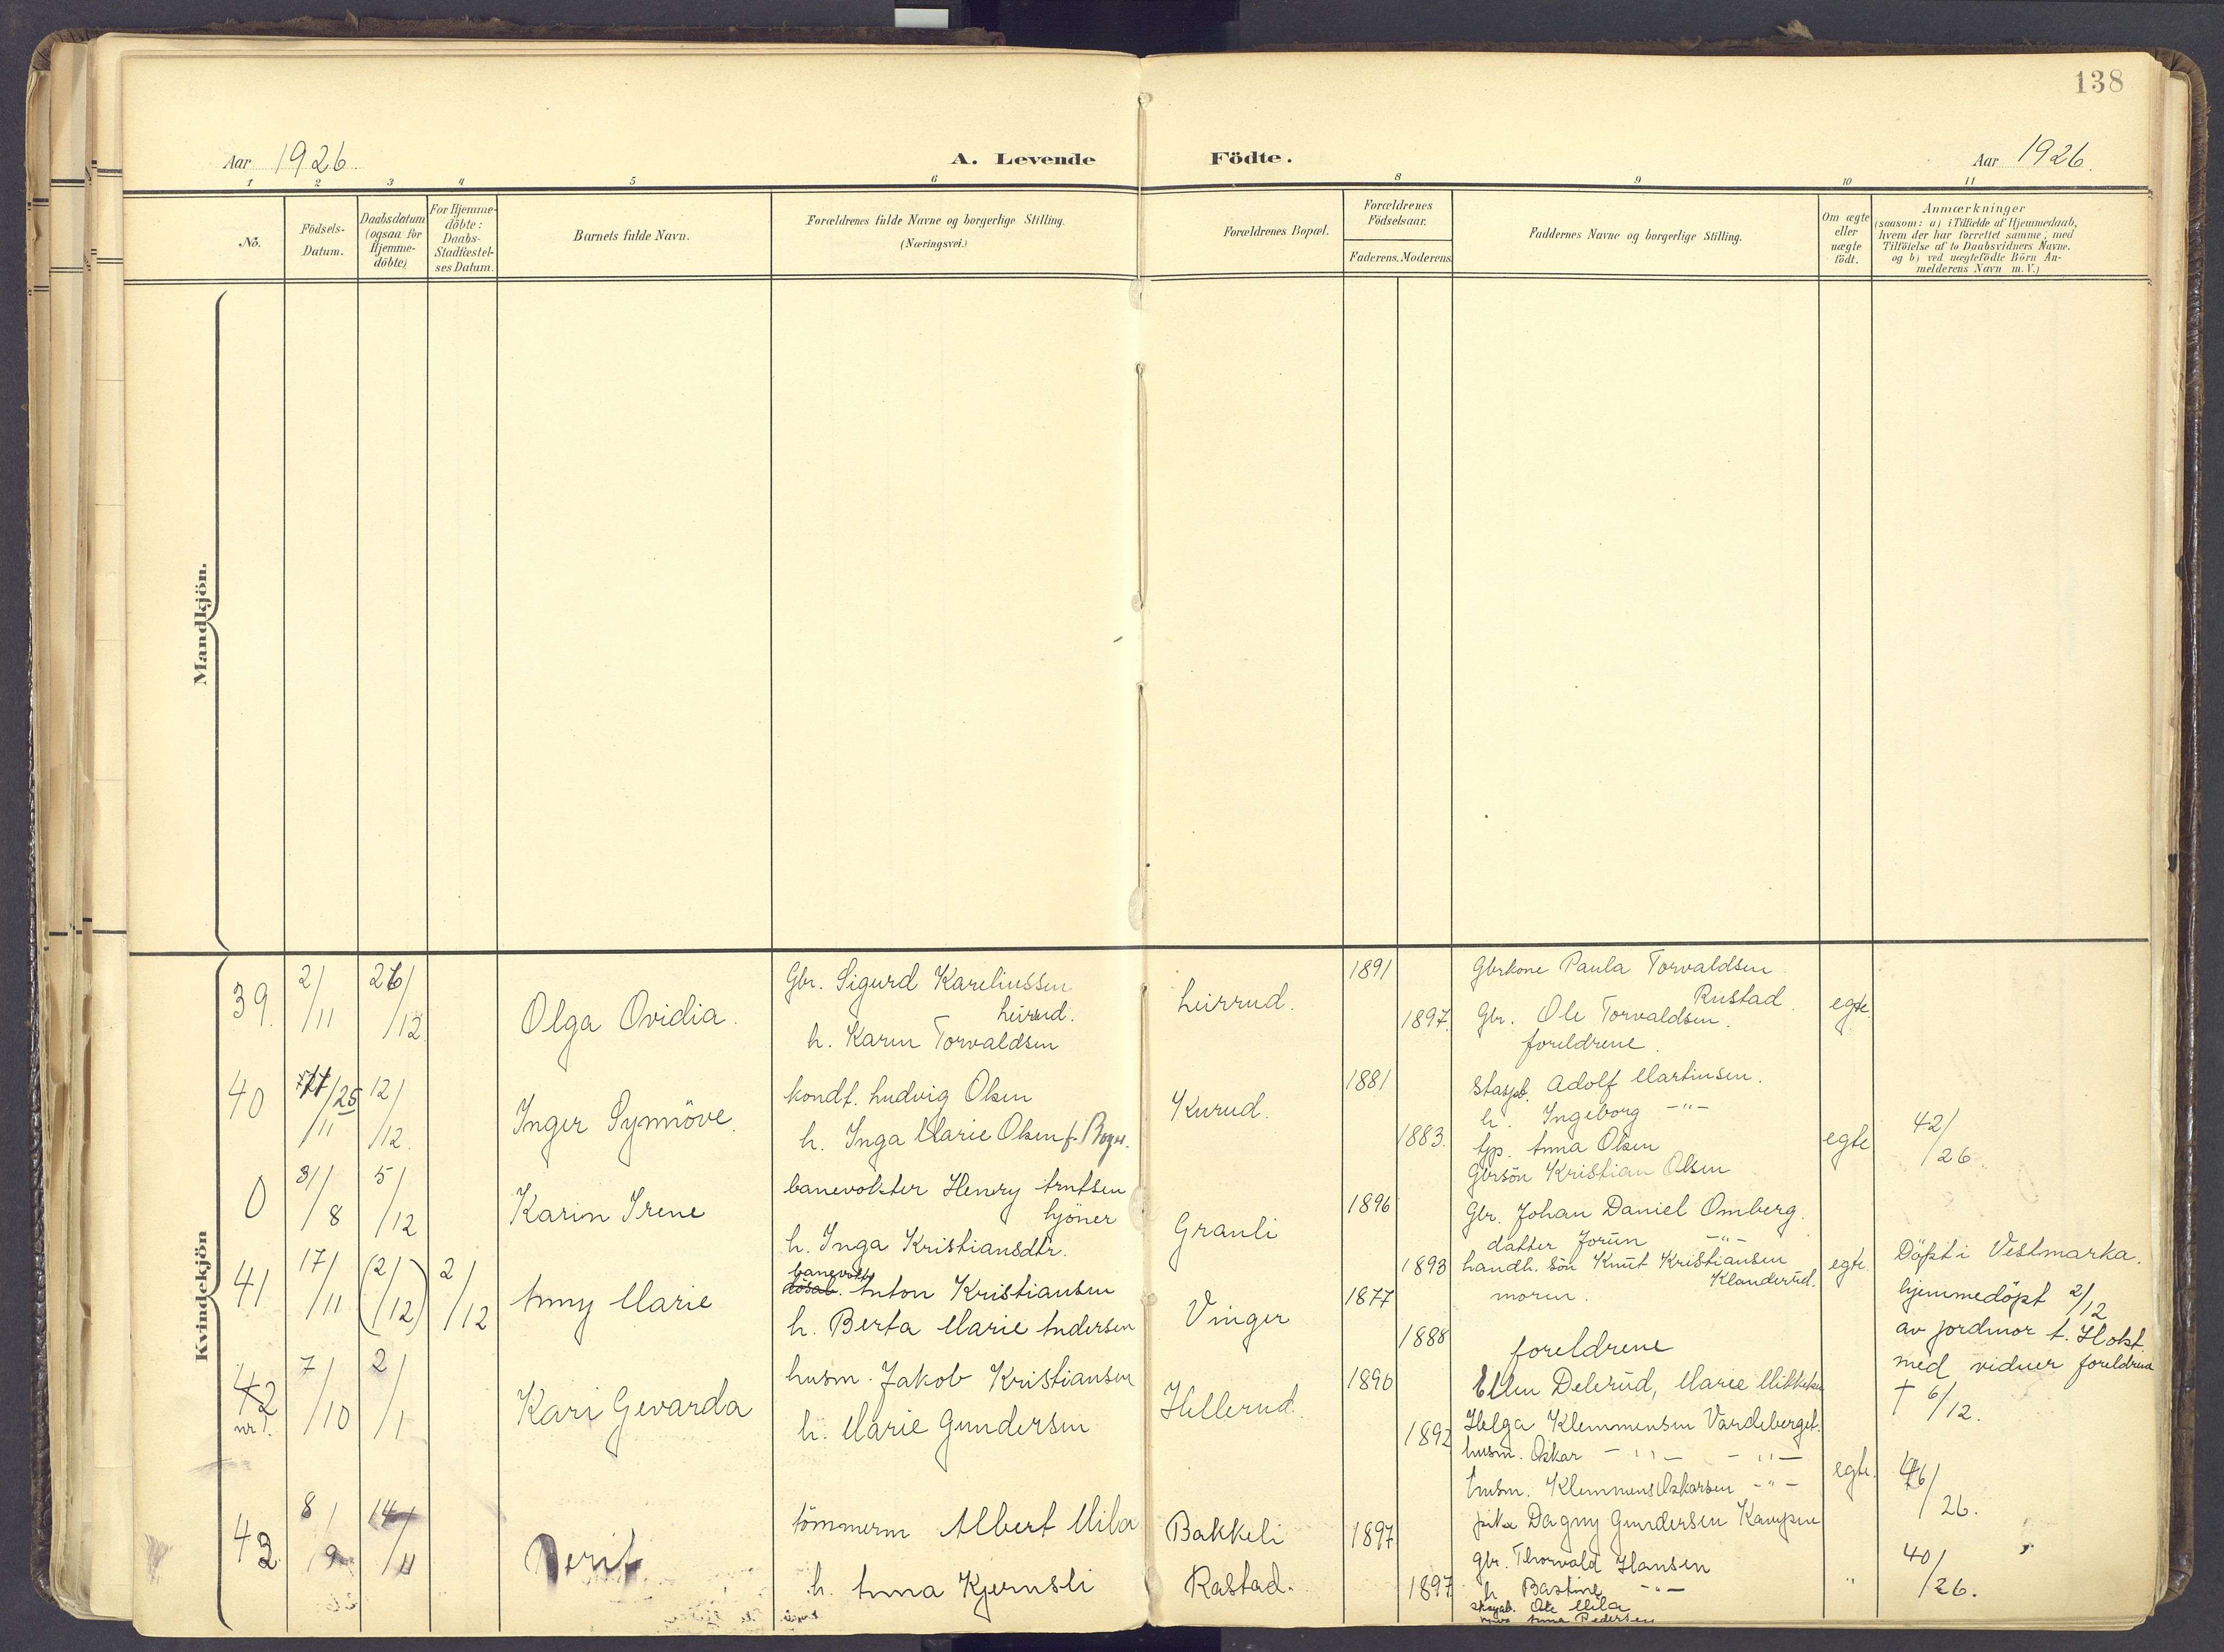 138
Aar 1926.
A. Levende Födte.
Aar 1926.
1 2 3 4 5 6 8 9 10 11
No.
Födsels-
Datum.
Daabsdatum
(ogsaa for
Hjemme-
döbte)
For Hjemme-
döbte:
Daabs-
Stadfæstel-
ses Datum.
Barnets fulde Navn.
Forældrenes fulde Navne og borgerlige Stilling.
(Næringsvei.)
Forældrenes Bopæl.
Forældrenes
Födselsaar.
Faderens. Moderens
Faddernes Navne og borgerlige Stilling.
Om ægte
eller
uægte
födt.
Anmærkninger
(saasom: a) i Tilfælde af Hjemmedaab,
hvem der har forrettet samme, med
Tilföielse af to Daabsvidners Navne.
og b) ved uægtefödte Börn An-
melderens Navn m. V.)
Mandkjön.
Kvindekjön
39.
2/11
26/12.
Olga Ovidia.
Gbr. Sigurd Kareliussen
Leirud.
h. Karen Torvaldsen
Leirrud.
1891
1897.
Gbrkone Paula Torvaldsen
Rustad.
Gbr. Ole Torvaldsen.
foreldrene.
egte.
40
/25
/11
12/12.
Inger Synnöve.
kondt. Ludvig Olsen
h. Inga Marie Olsen f.
Kurud.
1881
1883.
Adolf Martinsen.
h. Ingeborg -"-
tjp. Anna Olsen
Gbrsön Kristian Olsen
egte
42/26
0
31/8
5/12
Karin Irene
banevokter Henry Arntsen
h. Inga Kristiansdtr.
Granli
1896
1893
Gbr. Johan Daniel Omberg.
datter Jorun -"-
handh. sön Knut Kristiansen
Klanderud.
moren.
egte.
Döpt i Vestmarka.
41
17/11
(2/12)
2/12
Anny Marie
banevokt.
Anton Kristiansen
h. Berta Marie Andersen
Vinger
1877
1888
foreldrene
hjemmedöpt 2/12
av jordmor A. Holst
med vidner foreldrene
† 6/12.
42
nr 1.
7/10
2/1
Kari Gevarda
husm. Jakob Kristiansen
h. Marie Gundersen
Hellerud.
1890
1892
Ellen Delerud, Marie
Helga Klemmensen Vardeberget.
husm. Oskar -"- -"-
husm. Klemmens Oskarsen -"-
pike Dagny Gundersen
egte.
/26.
43.
8/9
14/11
Berit
tömmerm Albert Mila
h. Anna Kjernsli
Bakkeli
Rastad.
1897
1897
Gbr. Thorvald Hansen
h. Bastine -"-
skogab. Ole Mila
Anna Pedersen
"
40/26.